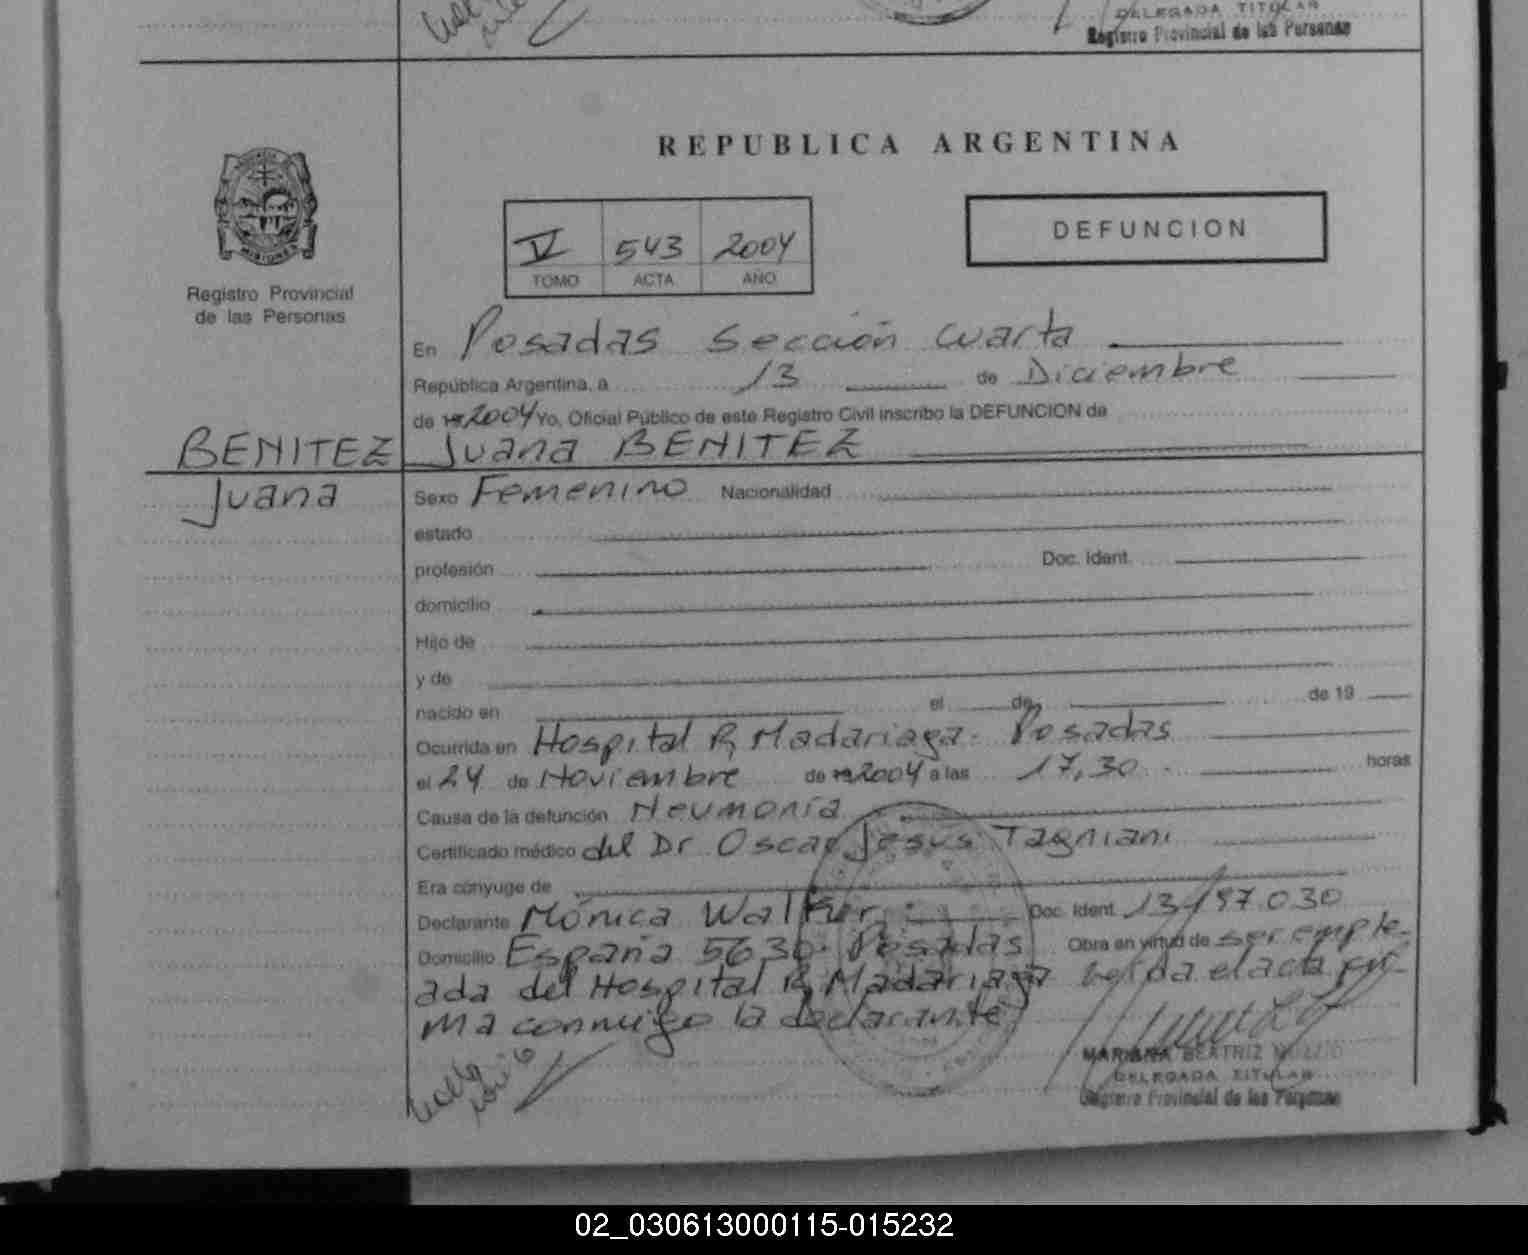 DELEGADA TITULAR
Registro Provincial de las Personas
REPUBLICA ARGENTINA
MISIONES
Registro Provincial
de las Personas
V 543 2004
TOMO ACTA AÑO
DEFUNCION
En Posadas Sección Cuarta
República Argentina, a 13 de Diciembre
de 19 2004 Yo, Oficial Público de este Registro Civil inscribo la DEFUNCION de
BENITEZ Juana BENITEZ
Juana
Sexo Femenino Nacionalidad
estado
profesión Doc. Ident.
domicilio
Hijo de
y de
nacido en el de de 19
Ocurrida en Hospital R. Madariaga. Posadas
el 24 de Noviembre de 19 2004 a las 17,30 horas
Causa de la defunción Neumonía
Certificado médico del Dr Oscar Jesus Tagniani
Era cónyuge de
Declarante Mónica Walker Doc. Ident. 13.197.030
Domicilio España 5630. Posadas Obra en virtud de ser emple-
ada del Hospital R. Madariaga leída el acta fir-
ma conmigo la declarante
MARIANA BEATRIZ
DELEGADA TITULAR
Registro Provincial de las Personas
02_030613000115-015232